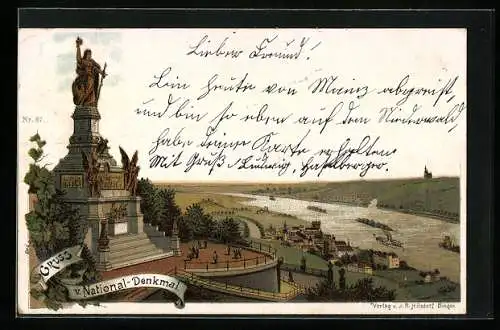 Lieber Freund!
Bin heute von Mainz abgereist,
und bin so eben auf dem Niederwald,
habe deine Karte erhalten
Mit Gruß Ludwig,
No. 87.
Gruss
v. National-Denkmal
Verlag v. R. Hilsdorf, Bingen.